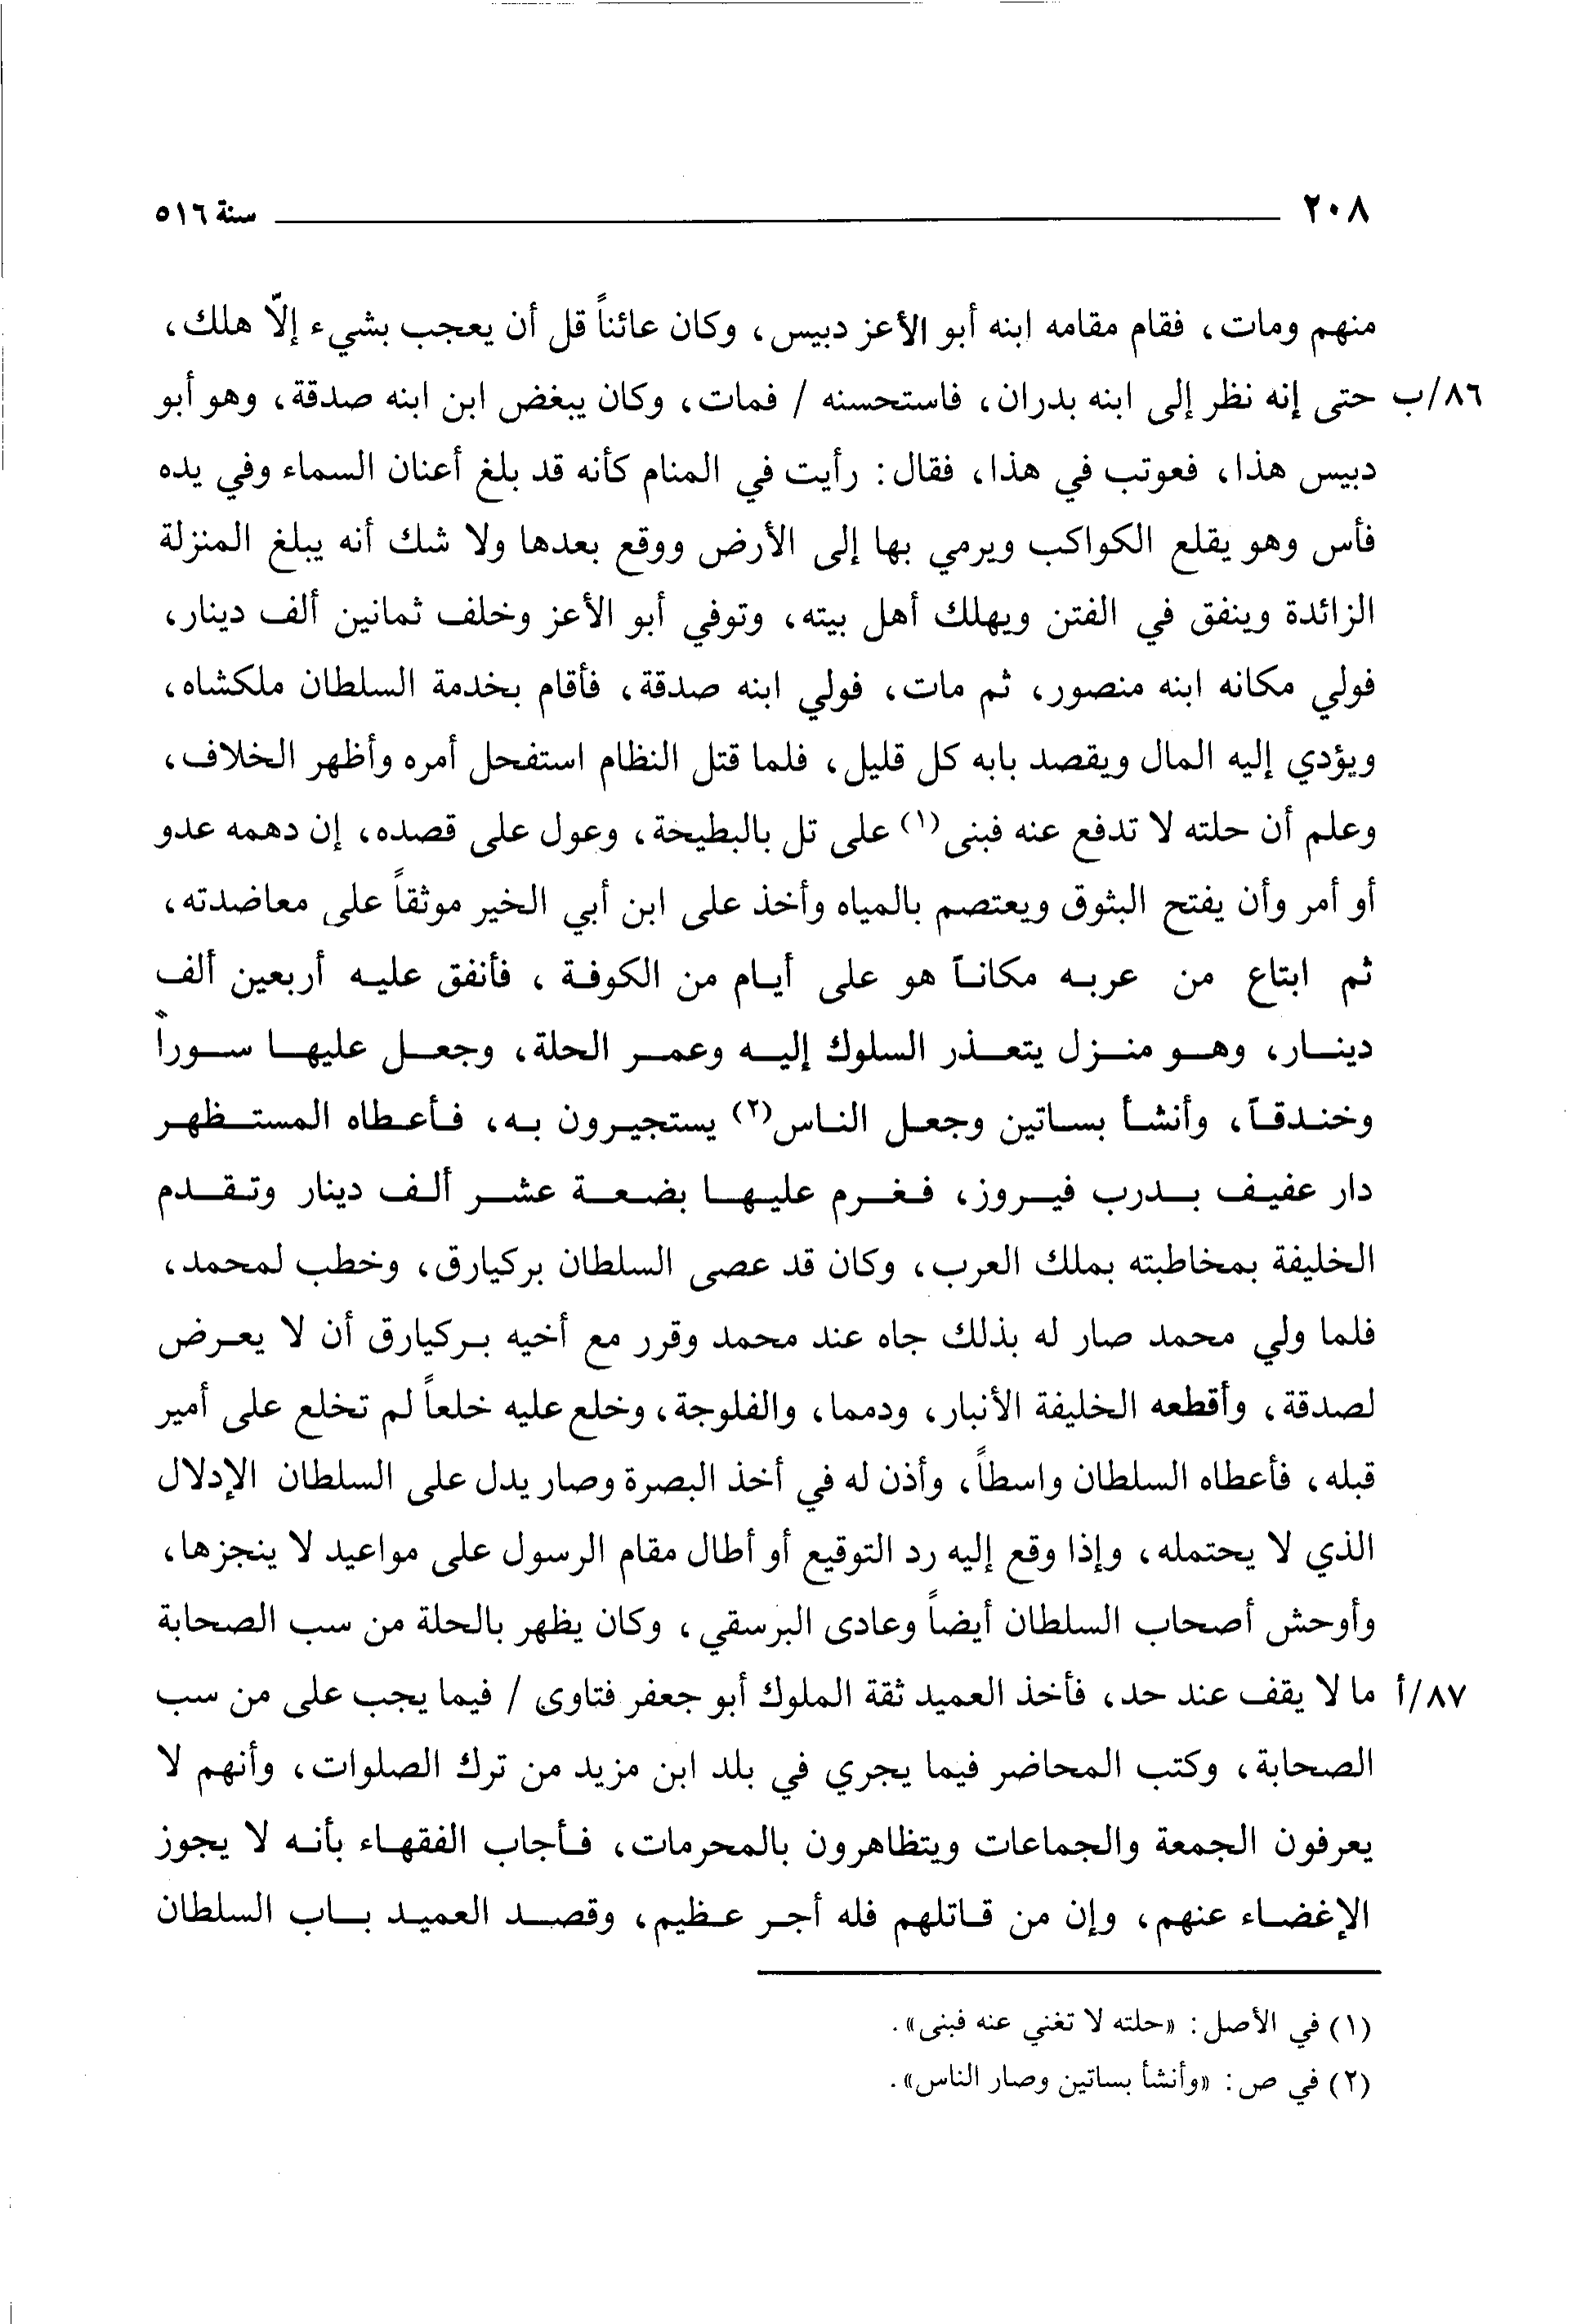 ٢٠٨ سنة ٥١٦
منهم ومات، فقام مقامه ابنه أبو الأعز دبيس، وكان عائناً قل أن يعجب بشيء إلاّ هلك،
٨٦/ب حتى إنه نظر إلى ابنه بدران، فاستحسنه / فمات، وكان يبغض ابن ابنه صدقة، وهو أبو
دبيس هذا، فعوتب في هذا، فقال: رأيت في المنام كأنه قد بلغ أعنان السماء وفي يده
فأس وهو يقلع الكواكب ويرمي بها إلى الأرض ووقع بعدها ولا شك أنه يبلغ المنزلة
الزائدة وينفق في الفتن ويهلك أهل بيته، وتوفي أبو الأعز وخلف ثمانين ألف دينار،
فولي مكانه ابنه منصور، ثم مات، فولي ابنه صدقة، فأقام بخدمة السلطان ملكشاه،
ويؤدي إليه المال ويقصد بابه كل قليل، فلما قتل النظام استفحل أمره وأظهر الخلاف،
وعلم أن حلته لا تدفع عنه فبنى(١) على تل بالبطيحة، وعول على قصده، إن دهمه عدو
أو أمر وأن يفتح البثوق ويعتصم بالمياه وأخذ على ابن أبي الخير موثقاً على معاضدته،
ثم ابتاع من عربه مكاناً هو على أيام من الكوفة، فأنفق عليه أربعين ألف
دينار، وهو منزل يتعذر السلوك إليه وعمر الحلة، وجعل عليها سوراً
وخندقاً، وأنشأ بساتين وجعل الناس(٢) يستجيرون به، فأعطاه المستظهر
دار عفيف بدرب فيروز، فغرم عليها بضعة عشر ألف دينار وتقدم
الخليفة بمخاطبته بملك العرب، وكان قد عصى السلطان بركيارق، وخطب لمحمد،
فلما ولي محمد صار له بذلك جاه عند محمد وقرر مع أخيه بركيارق أن لا يعرض
لصدقة، وأقطعه الخليفة الأنبار، ودمما، والفلوجة، وخلع عليه خلعاً لم تخلع على أمير
قبله، فأعطاه السلطان واسطاً، وأذن له في أخذ البصرة وصار يدل على السلطان الإدلال
الذي لا يحتمله، وإذا وقع إليه رد التوقيع أو أطال مقام الرسول على مواعيد لا ينجزها،
وأوحش أصحاب السلطان أيضاً وعادى البرسقي، وكان يظهر بالحلة من سب الصحابة
٨٧/أ ما لا يقف عند حد، فأخذ العميد ثقة الملوك أبو جعفر فتاوى / فيما يجب على من سب
الصحابة، وكتب المحاضر فيما يجري في بلد ابن مزيد من ترك الصلوات، وأنهم لا
يعرفون الجمعة والجماعات ويتظاهرون بالمحرمات، فأجاب الفقهاء بأنه لا يجوز
الإغضاء عنهم، وإن من قاتلهم فله أجر عظيم، وقصد العميد باب السلطان
(١) في الأصل: «حلته لا تغني عنه فبنى».
(٢) في ص: «وأنشأ بساتين وصار الناس».